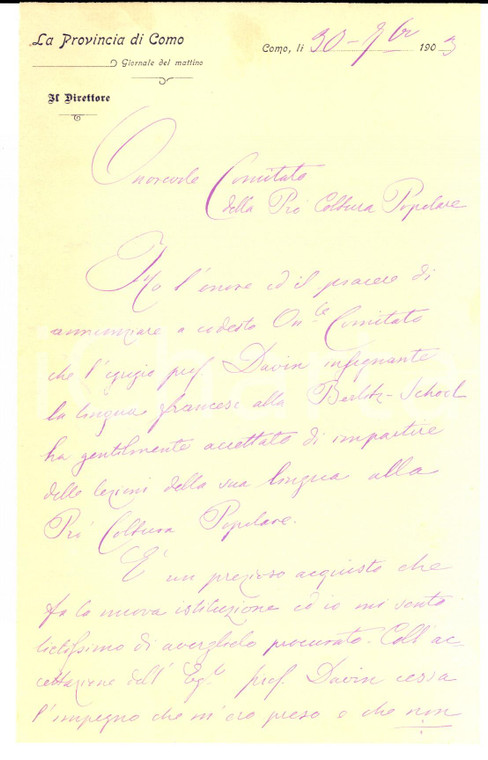 La Provincia di Como
Giornale del mattino
Il Direttore
Como, li 30 - 9bre 1903
Onorevole Comitato
della Pro Coltura Popolare
Ho l'onore ed il piacere di
annunziare a codesto On.le Comitato
che l'egregio prof. Davin insegnante
la lingua francese alla Berlitz-School
ha gentilmente accettato di impartire
delle lezioni della sua lingua alla
Pro Coltura Popolare.
È un prezioso acquisto che
fa la nuova istituzione ed io mi sento
lietissimo di averglielo procurato. Coll'ac-
cettazione dell'Eg.o prof. Davin cessa
l'impegno che m'ero preso e che non